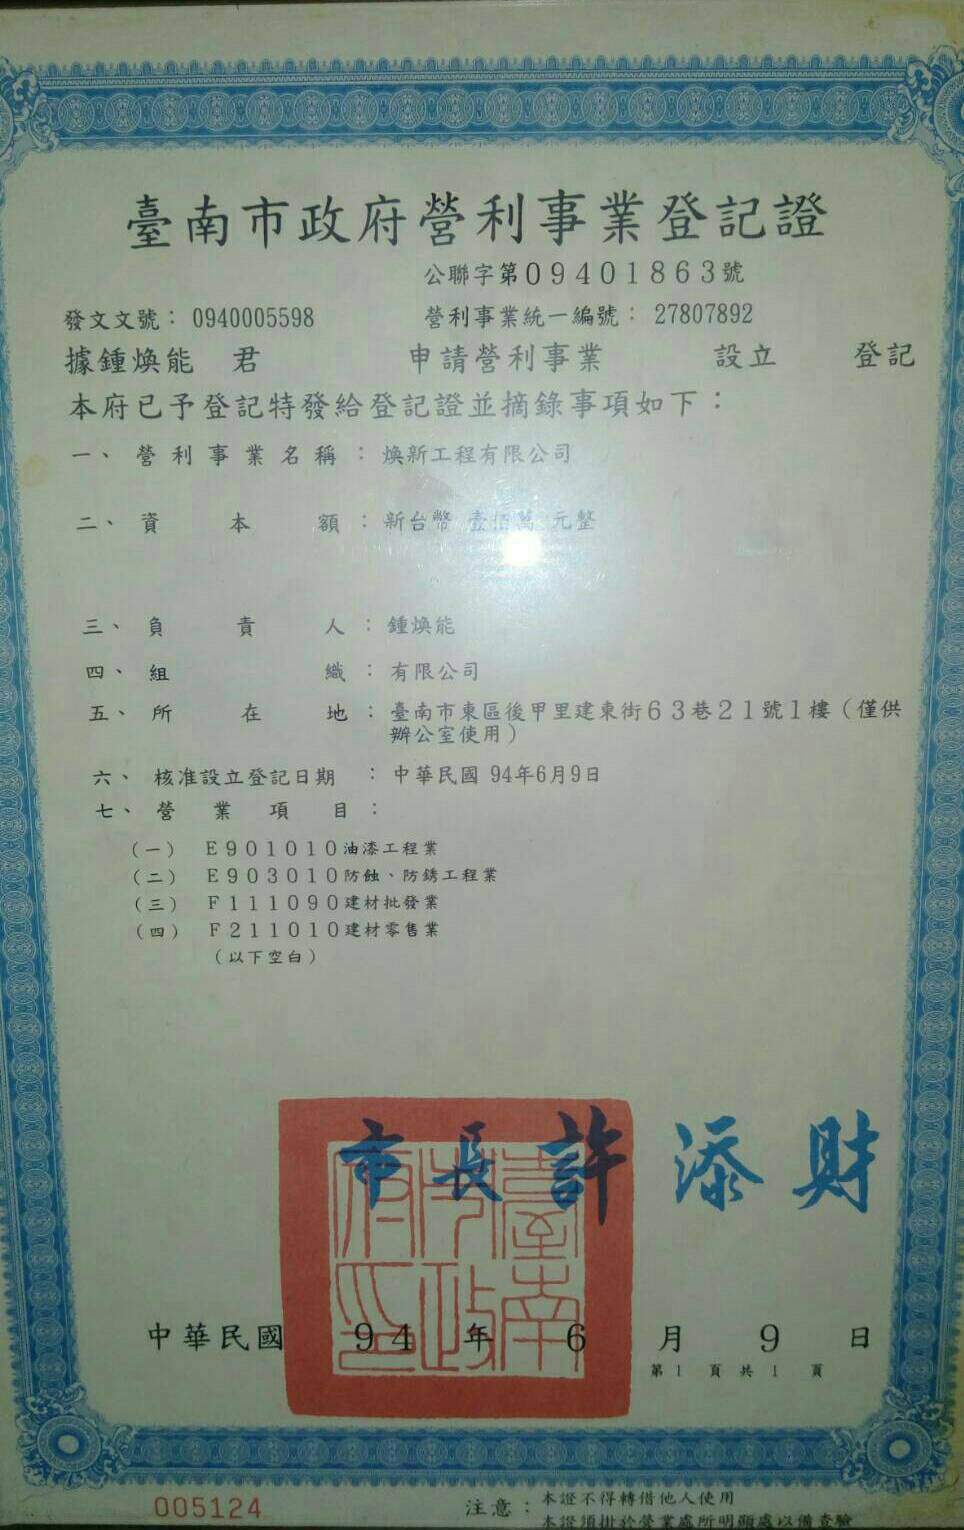 臺南市政府營利事業登記證
公聯字第09401863號
發文文號：0940005598 營利事業統一編號：27807892
據鍾煥能 君 申請營利事業 設立 登記
本府已予登記特發給登記證並摘錄事項如下：
一、營利事業名稱：煥新工程有限公司
二、資本額：新台幣 壹佰萬 元整
三、負責人：鍾煥能
四、組織：有限公司
五、所在地：臺南市東區後甲里建東街63巷21號1樓（僅供
辦公室使用）
六、核准設立登記日期：中華民國 94年6月9日
七、營業項目：
（一） E901010油漆工程業
（二） E903010防蝕、防銹工程業
（三） F111090建材批發業
（四） F211010建材零售業
（以下空白）
市長許添財
臺南市政府印
中華民國 94 年 6 月 9 日
第1頁共1頁
005124
注意：本證不得轉借他人使用
本證須掛於營業處所明顯處以備查驗